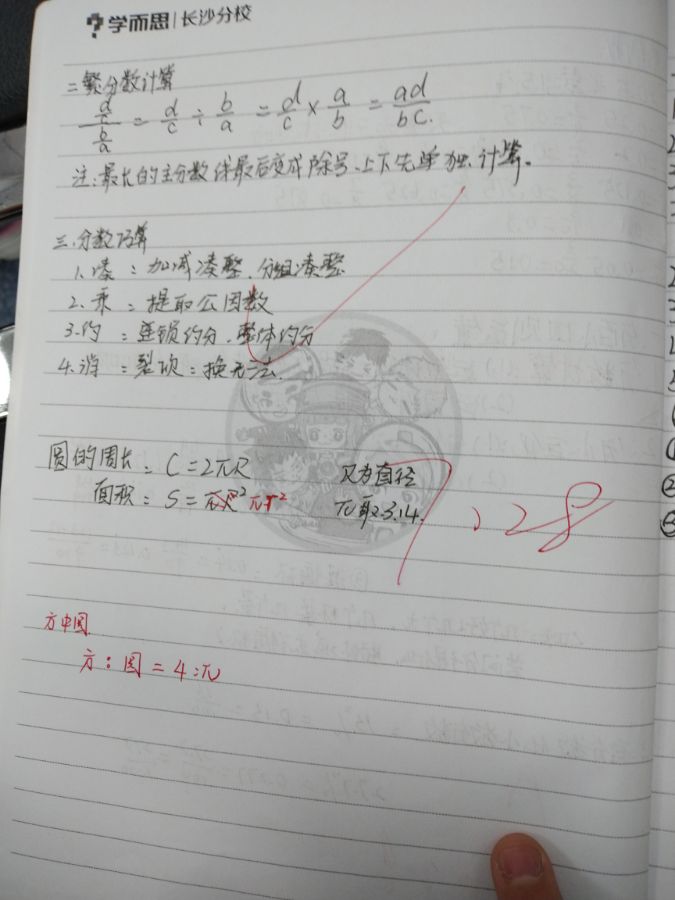 学而思 | 长沙分校
二.繁分数计算
\frac{\frac{d}{c}}{\frac{b}{a}} = \frac{d}{c} ÷ \frac{b}{a} = \frac{d}{c} × \frac{a}{b} = \frac{ad}{bc}.
注:最长的主分数线最后变成除号、上下先单独计算。
三.分数巧算
1.凑:加减凑整、分组凑整
2.乘:提取公因数
3.约:连锁约分、整体约分
4.消:裂项:换元法.
圆的周长:C=2πR
又为直径
面积:S=πR² πr²
π取3.14.
7、28
方中圆
方:圆=4:π